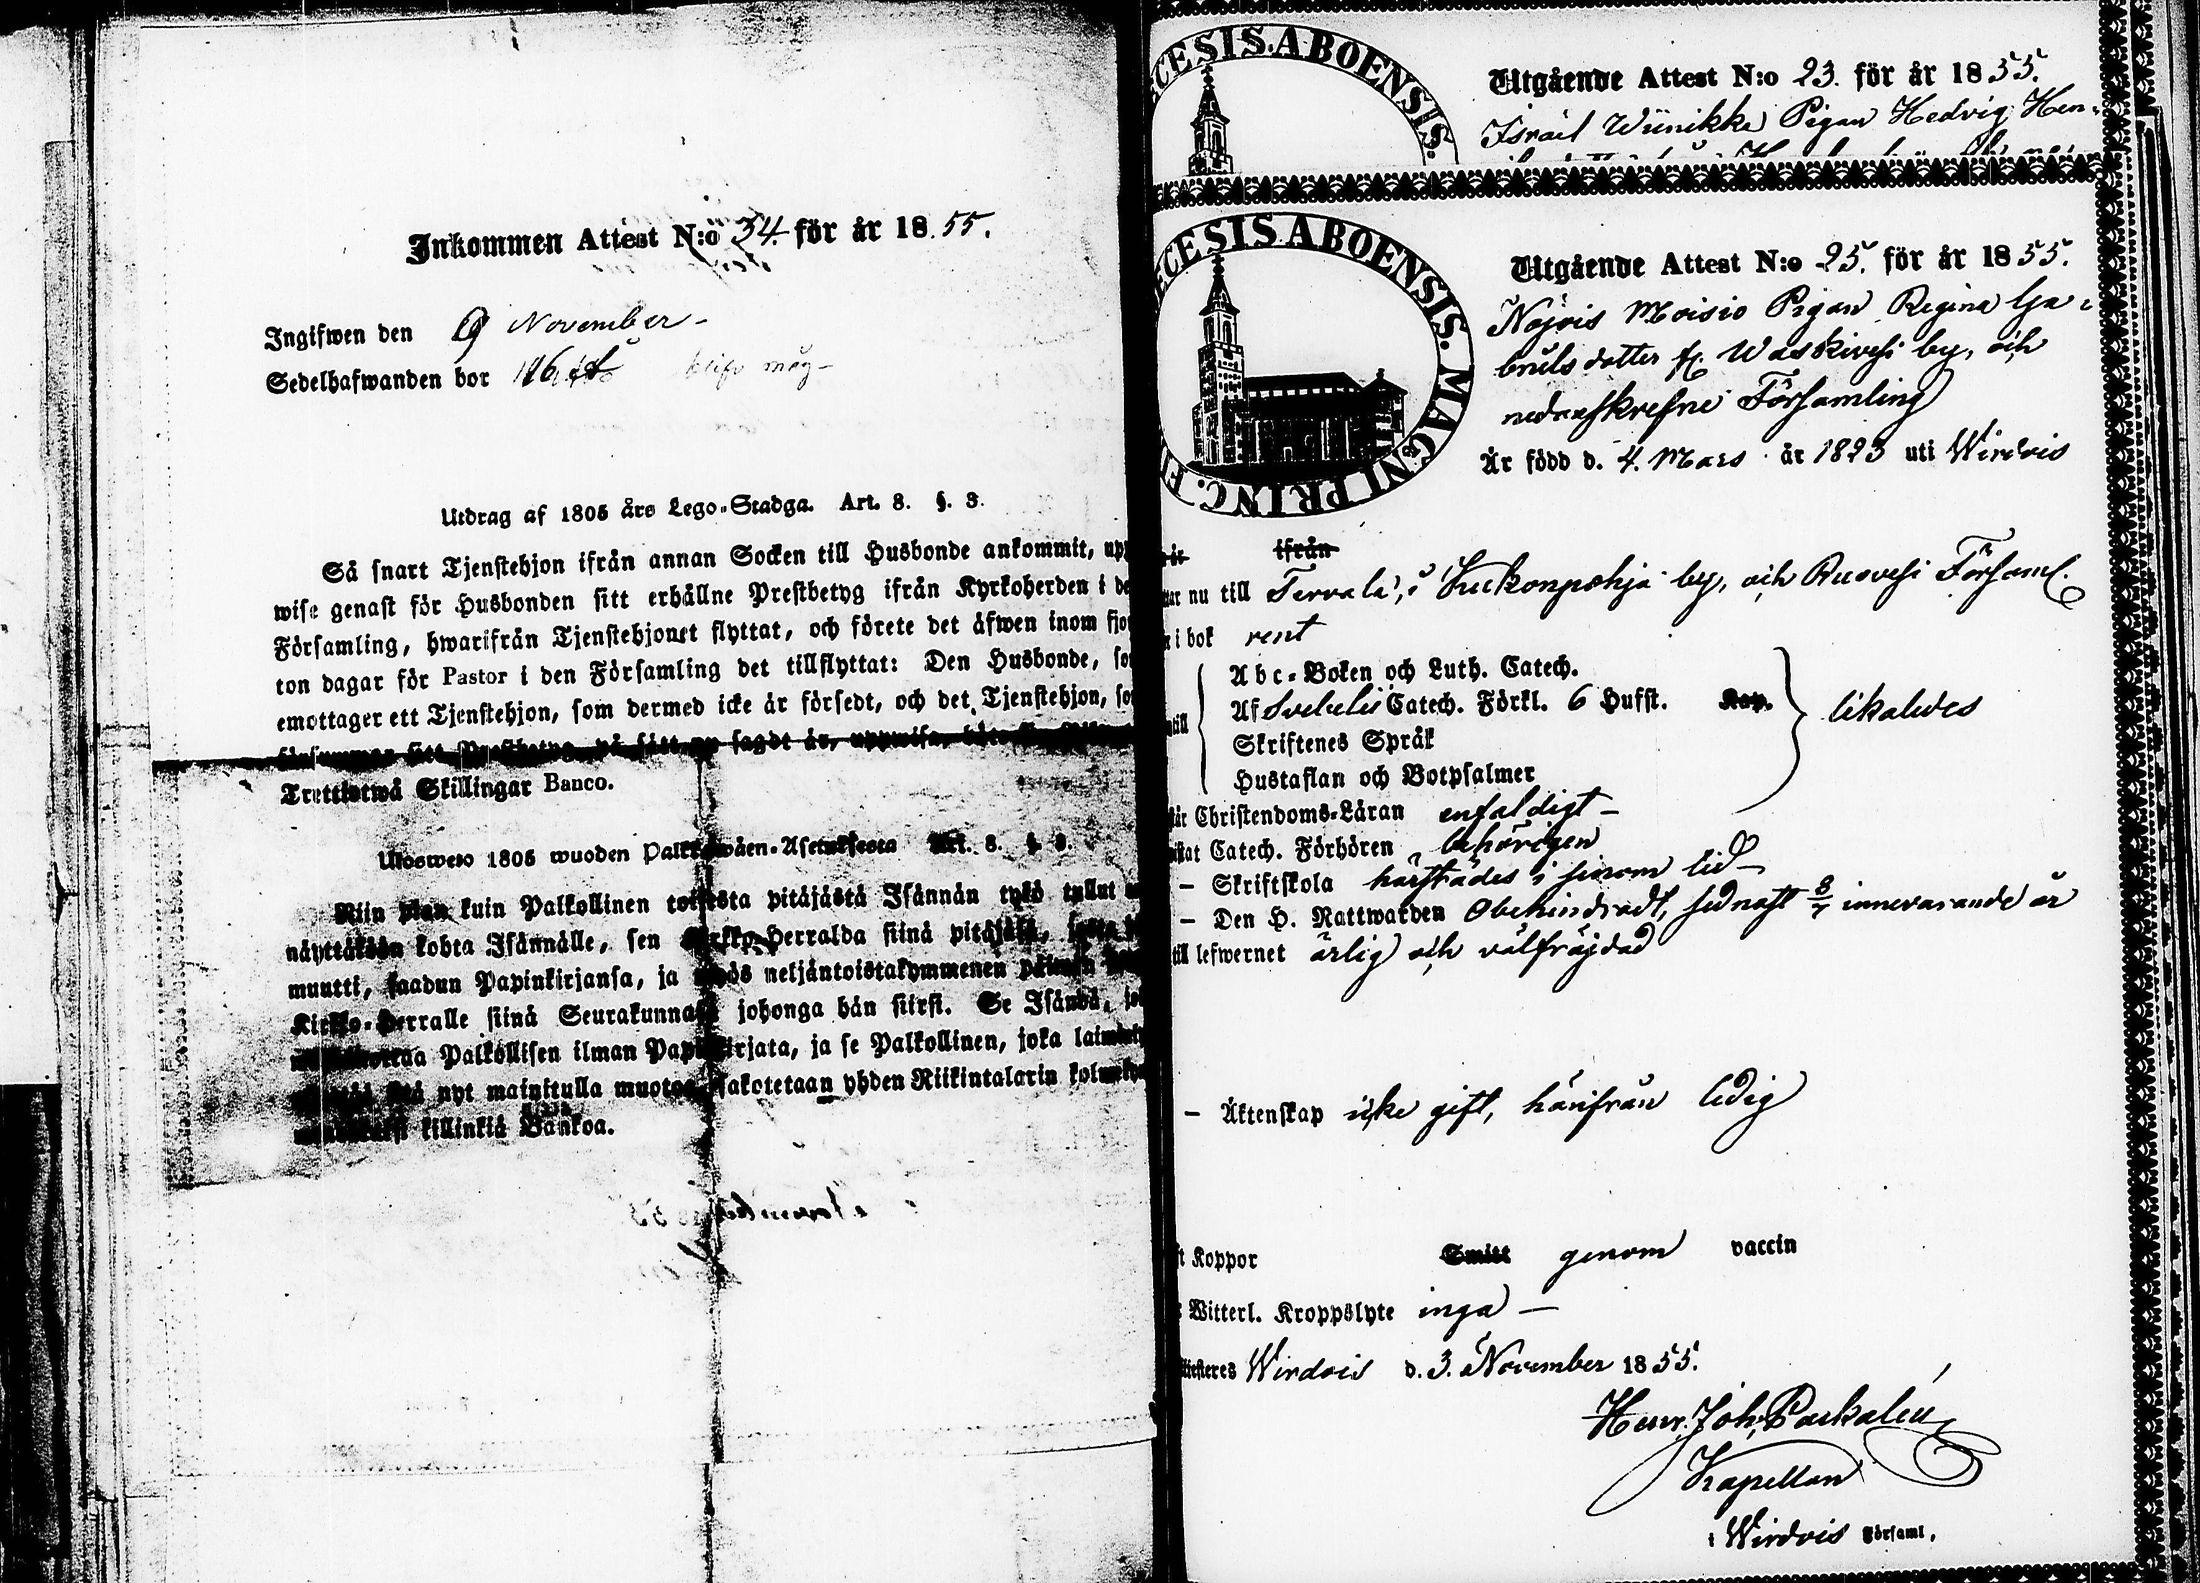 Inkommen Attest N:o 34. för år 1855.
Ingifwen den 9 November –
Sedelhafwanden bor
Utdrag af 1805 års Lego-Stadga. Art. 8. §. 3.
Så snart Tjenstehjon ifrån annan Socken till Husbonde ankommit, upp
wise genast för Husbonden sitt erhållne Prestbetyg ifrån Kyrkoherden i de
Församling, hwarifrån Tjenstehjonet flyttat, och förete det äfwen inom fjor
ton dagar för Pastor i den Församling det tillflyttat: Den Husbonde, so
emottager ett Tjenstehjon, som dermed icke är försedt, och det Tjenstehjon, so
försummar sitt Prestbetyg, på sätt nu sagdt är, uppwisa,
Trettiotwå Skillingar Banco.
Ulosweto 1805 wuoden Palkkawäen-Asetuksesta Art. 8. §. 3.
Niin pian kuin Palkollinen toisesta pitäjästä Isännän tykö tullut
näyttäkään kohta Isännälle, sen Kirkko-Herralda siinä pitäjäsä,
muutti, saadun Papinkirjansa, ja myös neljäntoistakymmenen päiwän
Kirkko-Herralle siinä Seurakunnasa johonga hän siirsi. Se Isändä, jo
Palkollisen ilman Papinkirjata, ja se Palkollinen, joka laimin
sitä nyt mainitulla muotoa sakotetaan yhden Riikintalarin kolme
killinkiä Bankoa.
CESIS.ABOENSIS.
Utgående Attest N:o 23. för år 1855.
Israel Wiinikke Pigan Hedvig Hen-
CESIS ABOENSIS. MAGNI PRINC. FI
Utgående Attest N:o 25. för år 1855.
Nojois Moisio Pigan Regina Ga-
briels dotter fr. Waskivesi by, och
nedanskrefne Församling
Är född d. 4. Mars år 1823 uti Wirdois
är ifrån
tar nu till Tervala, i Kukonpohja by, och Ruovesi Församl.
n i bok rent
Abc-Boken och Luth. Catech.
Af Svebelii Catech. Förkl. 6 Hufst. Kap.
till likaledes
Skriftenes Språk
Hustaflan och Botpsalmer
står Christendoms-Läran enfaldigt –
istat Catech. Förhören behörigen
– Skriftskola härstädes i sinom tid –
– Den H. Nattwarden Obehindradt, sednast 8/7 innevarande år
till lefwernet ärlig och välfräjdad
– Äktenskap icke gift, härifrån ledig
ft Koppor Smitt genom vaccin
r Witterl. Kroppslyte inga –
ttesteres Wirdois d. 3. November 1855.
Henr. Joh. Paskalin
Kapellan
i Wirdois Församl.